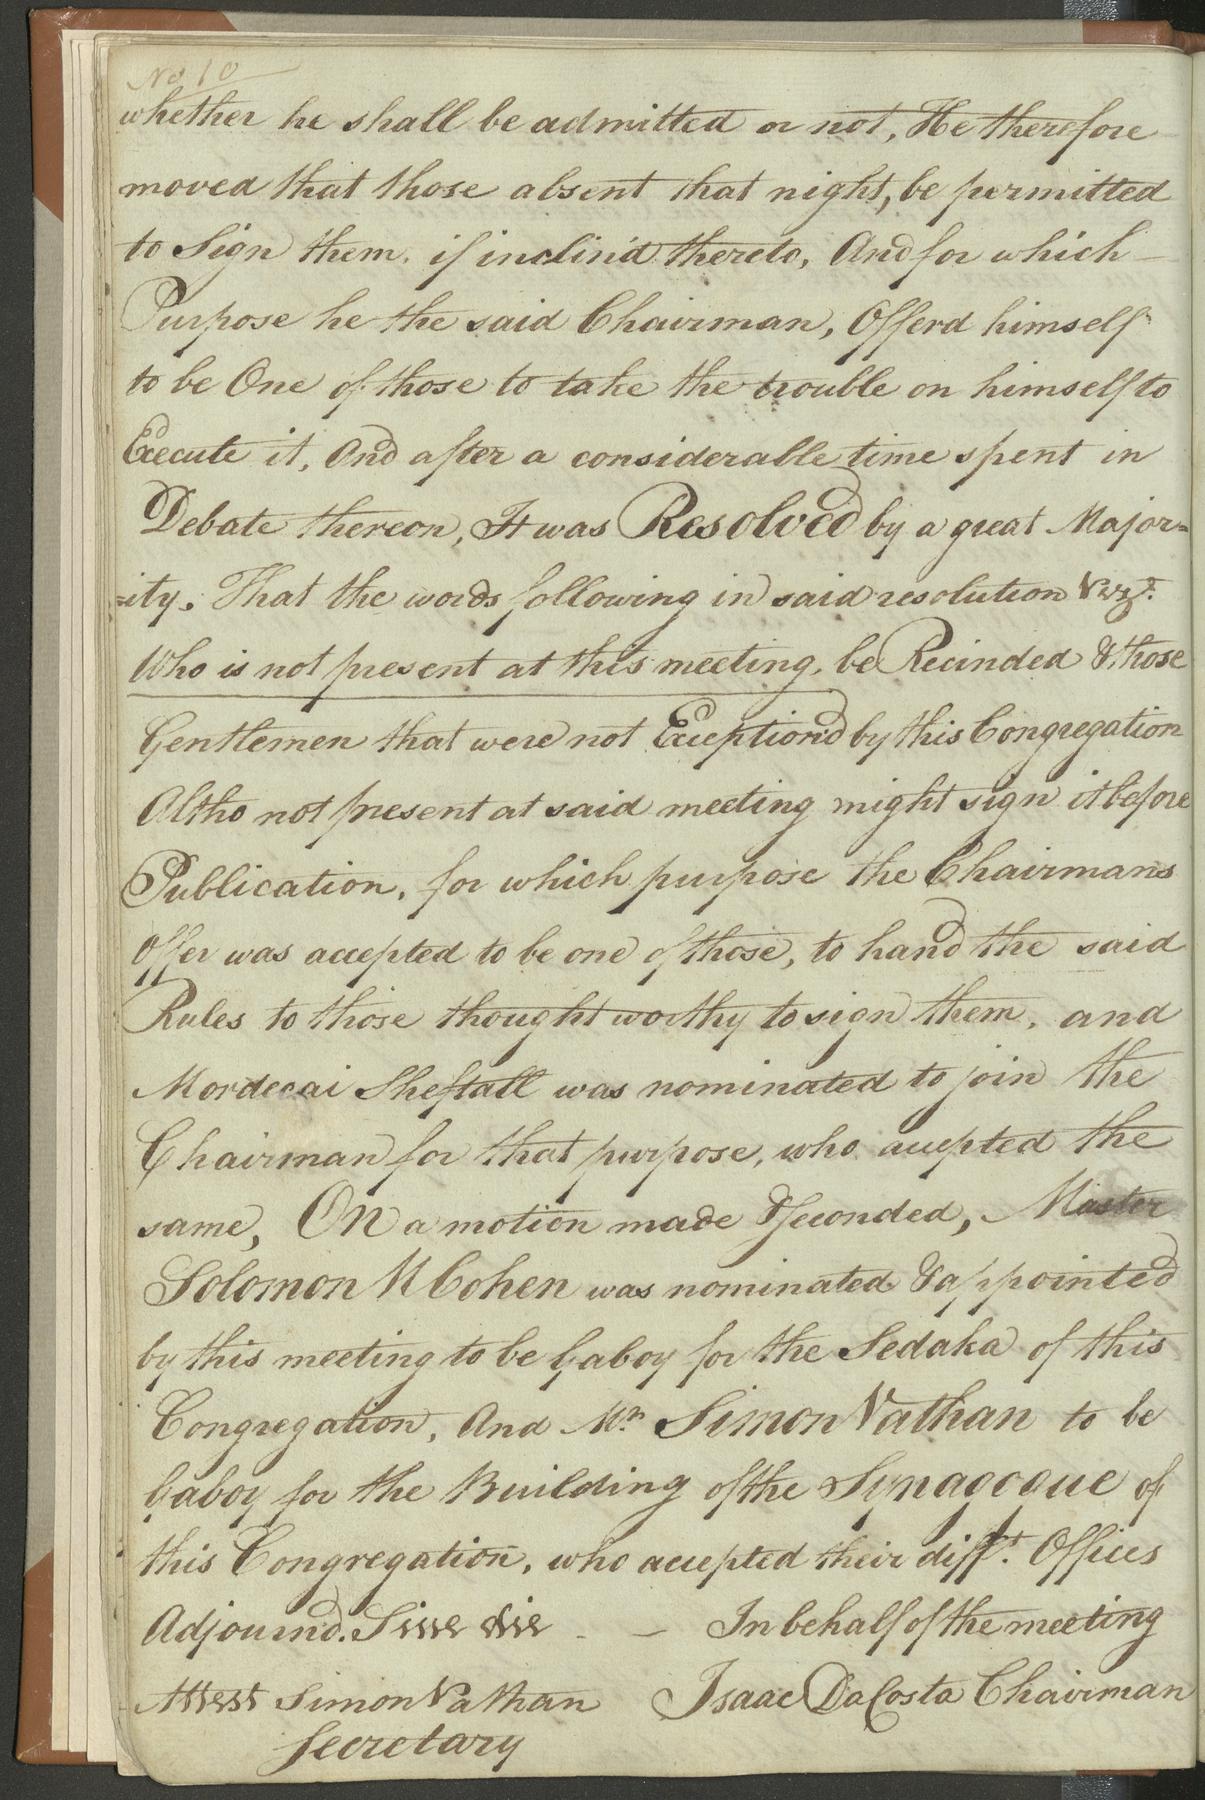 No 10
whether he shall be admitted or not, He therefore
moved that those absent that night, be permitted
to Sign them. if inclin'd thereto, And for which
Purpose he the said Chairman, Offerd himself
to be One of those to take the trouble on himself to
Execute it, And after a considerable time spent in
Debate thereon, It was Resolved by a great Major=
=ity. That the words following in said resolution Vizt.
Who is not present at this meeting, be Recinded & those
Gentlemen that were not Exceptiond by this Congregation
Altho not present at said meeting might sign it before
Publication, for which purpose the Chairmans
Offer was accepted to be one of those, to hand the said
Rules to those thought worthy to sign them, and
Mordecai Sheftall was nominated to join the
Chairman for that purpose, who accepted the
same, On a motion made & Seconded, Master
Solomon M Cohen was nominated & appointed
by this meeting to be Gaboy for the Sedaka of this
Congregation, And Mr. Simon Nathan to be
Gaboy for the Building of the Synagogue of
this Congregation, who accepted their difft. Offices
Adjournd. Sine die - - In behalf of the meeting
Attest Simon Nathan Isaac DaCosta Chairman
Secretary